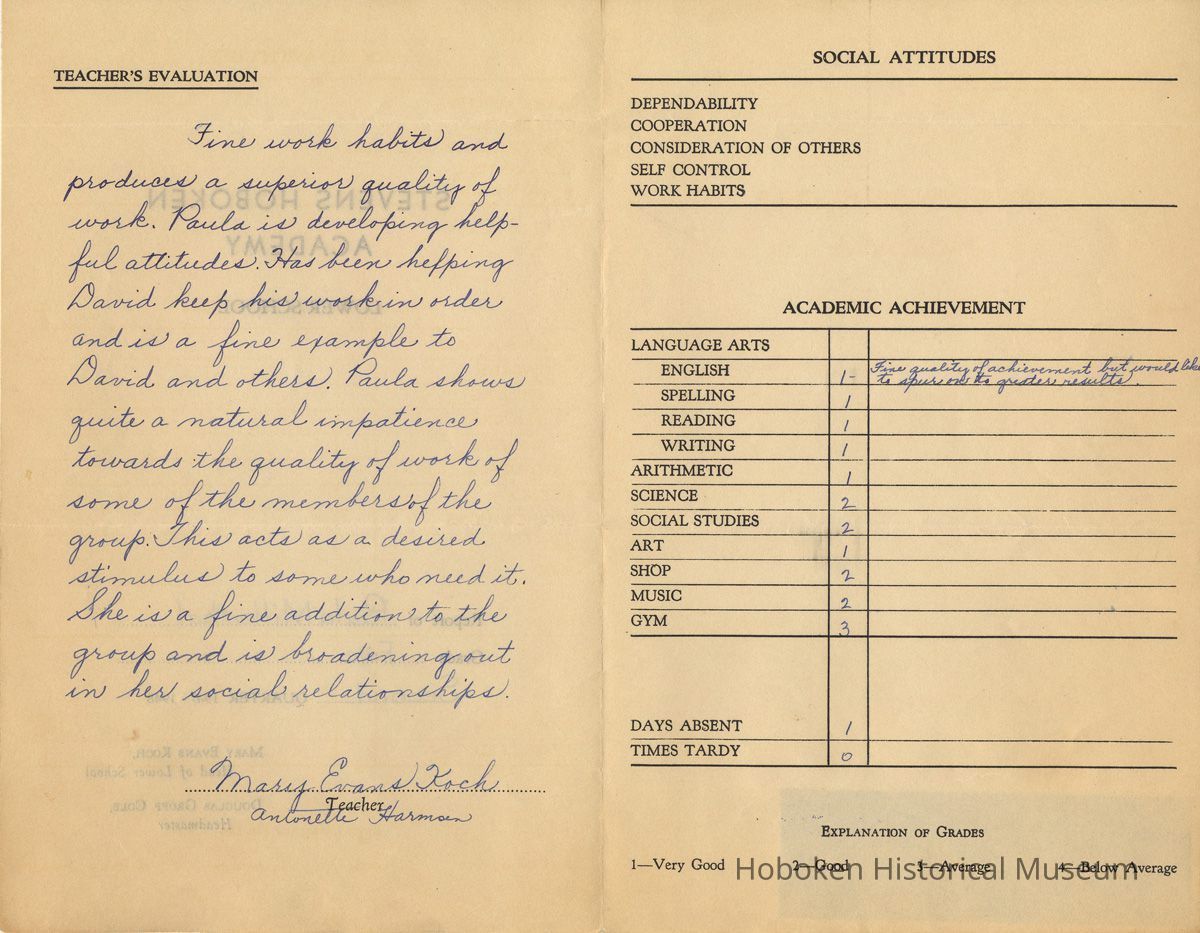 TEACHER'S EVALUATION
Fine work habits and
produces a superior quality of
work. Paula is developing help-
ful attitudes. Has been helping
David keep his work in order
and is a fine example to
David and others. Paula shows
quite a natural impatience
towards the quality of work of
some of the members of the
group. This acts as a desired
stimulus to some who need it.
She is a fine addition to the
group and is broadening out
in her social relationships.
Mary Evans Koch
Teacher
Antonette Harmsen
STEVENS HOBOKEN
ACADEMY
LOWER SCHOOL
MARY EVANS KOCH,
Head of Lower School
DOUGLAS GROFF COLE,
Headmaster
SOCIAL ATTITUDES
DEPENDABILITY
COOPERATION
CONSIDERATION OF OTHERS
SELF CONTROL
WORK HABITS
ACADEMIC ACHIEVEMENT
LANGUAGE ARTS
ENGLISH 1- Fine quality of achievement but would like
to spur on to greater results.
SPELLING 1
READING 1
WRITING 1
ARITHMETIC 1
SCIENCE 2
SOCIAL STUDIES 2
ART 1
SHOP 2
MUSIC 2
GYM 3
DAYS ABSENT 1
TIMES TARDY 0
EXPLANATION OF GRADES
1—Very Good 2—Good 3—Average 4—Below Average
Hoboken Historical Museum